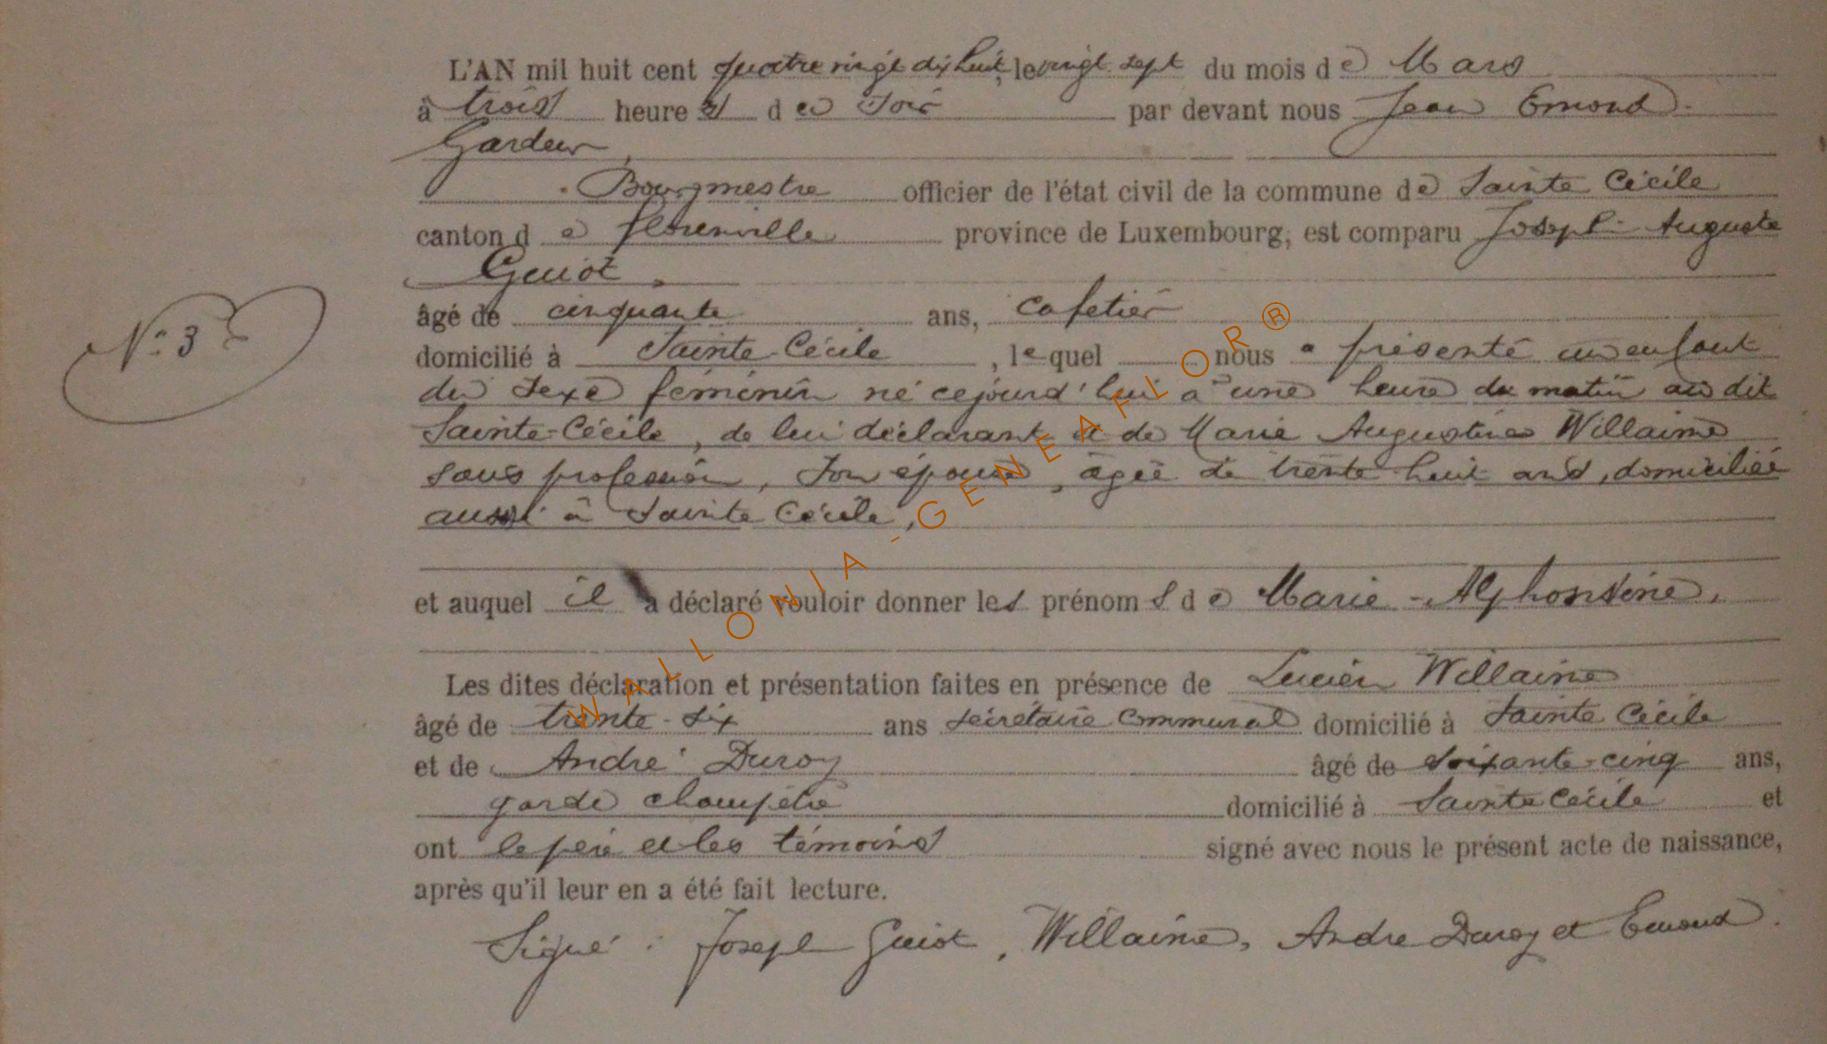 L'AN mil huit cent quatre vingt dix huit, le vingt sept du mois de Mars
à trois heures du Soir par devant nous Jean Emond
Gardeur,
Bourgmestre officier de l'état civil de la commune de Sainte Cécile
canton de Florenville province de Luxembourg, est comparu Joseph Auguste
Guiot,
âgé de cinquante ans, cafetier
N° 3
domicilié à Sainte-Cécile, lequel nous a présenté un enfant
du sexe féminin né cejourd'hui à une heure du matin au dit
Sainte-Cécile, de lui déclarant et de Marie Augustine Willaime
sans profession, son épouse, âgée de trente huit ans, domiciliée
aussi à Sainte Cécile,
et auquel il a déclaré vouloir donner les prénoms de Marie-Alphonsine.
Les dites déclaration et présentation faites en présence de Lucien Willaime
âgé de trente-six ans secrétaire communal domicilié à Sainte Cécile
et de André Duroy âgé de soixante-cinq ans,
garde champêtre domicilié à Sainte Cécile et
ont le père et les témoins signé avec nous le présent acte de naissance,
après qu'il leur en a été fait lecture.
Signé : Joseph Guiot, Willaime, André Duroy et Emond.
WALLONIA-GENEAFLOR®